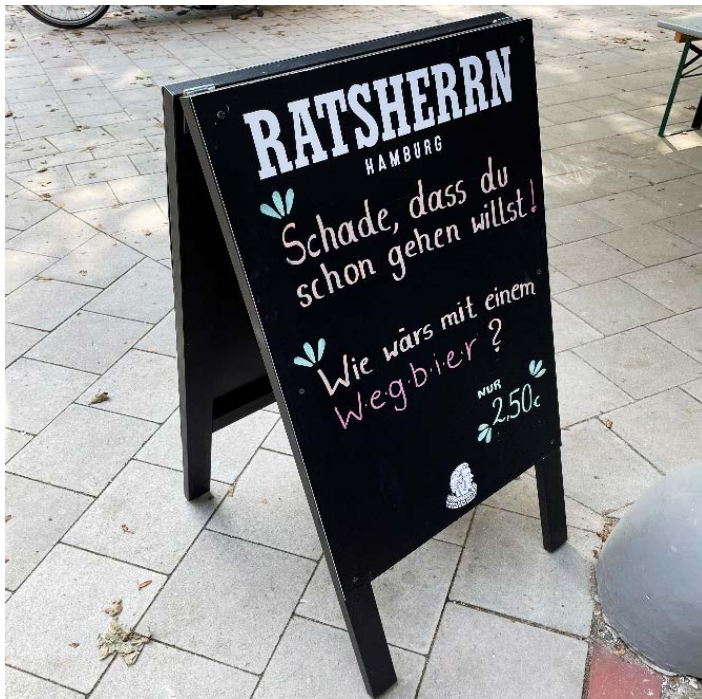 RATSHERRN
HAMBURG
Schade, dass du
schon gehen willst!
Wie wärs mit einem
W·e·g·b·i·e·r ?
NUR
2,50€